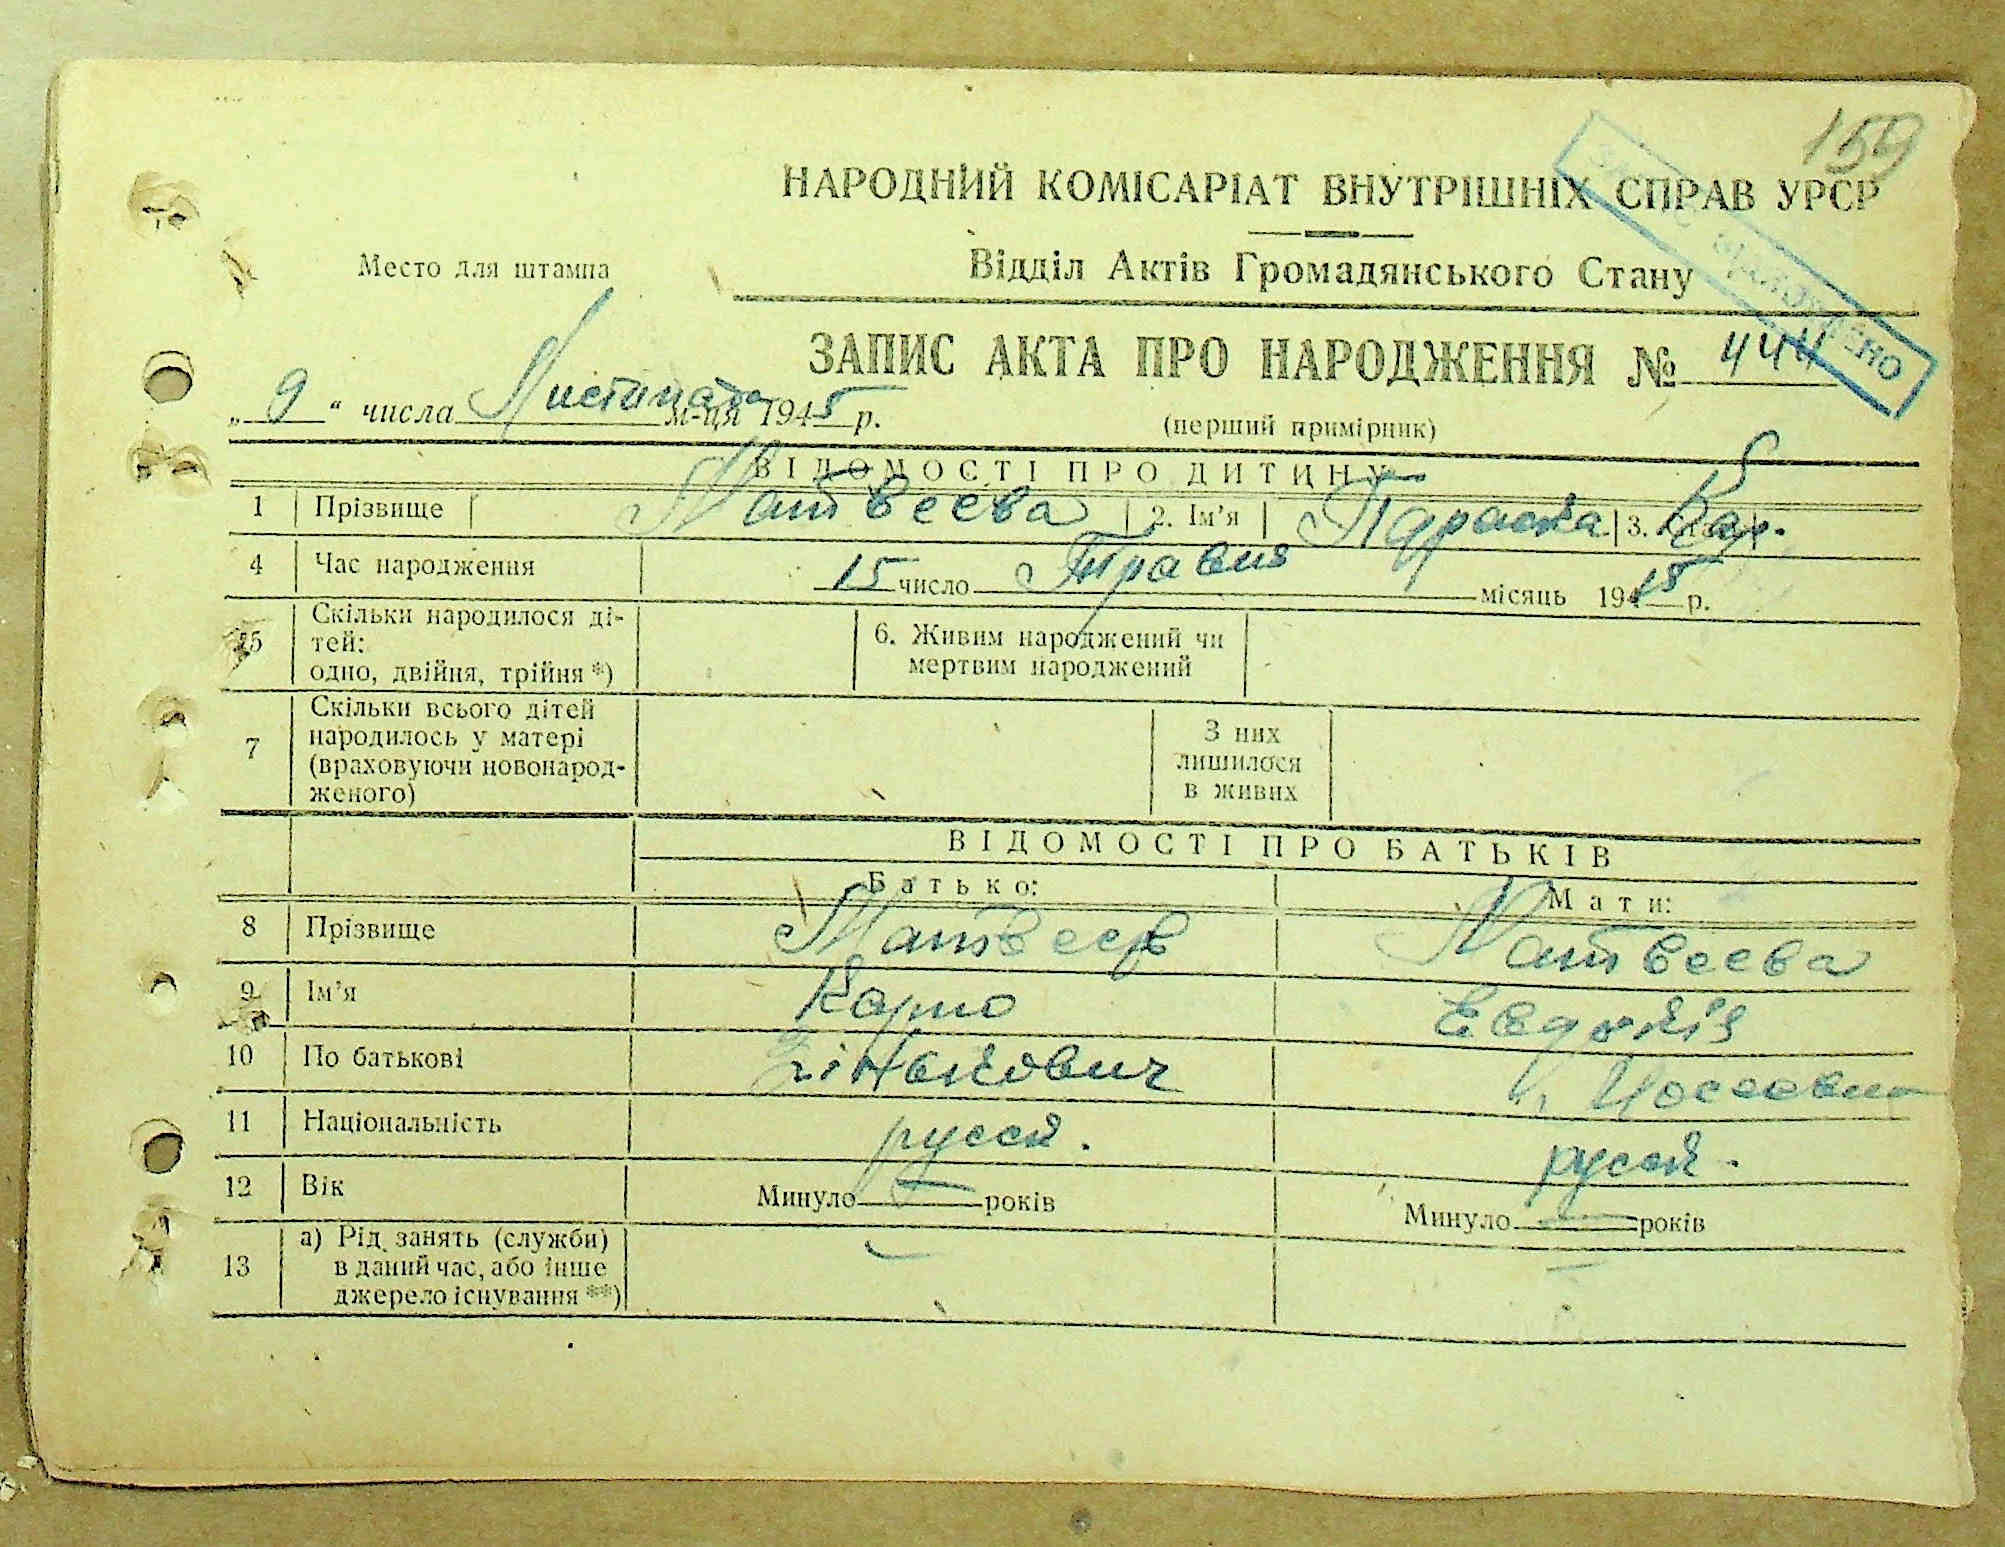 159
НАРОДНИЙ КОМІСАРІАТ ВНУТРІШНІХ СПРАВ УРСР
Место для штампа
Відділ Актів Громадянського Стану
ЗАПИС АКТА ПРО НАРОДЖЕННЯ № 444
„ 9 " числа Листопада м-ця 1945 р.
(перший примірник)
ВІДОМОСТІ ПРО ДИТИНУ
1 Прізвище Матвеева 2. Ім'я Параска 3. Кар.
4 Час народження 15 число Травня місяць 1915 р.
5 Скільки народилося ді-
тей:
одно, двійня, трійня *)
6. Живим народжений чи
мертвим народжений
7 Скільки всього дітей
народилось у матері
(враховуючи новонарод-
женого)
З них
лишилося
в живих
ВІДОМОСТІ ПРО БАТЬКІВ
Батько: Мати:
8 Прізвище Матвеев Матвеева
9 Ім'я Карпо Евдокія
10 По батькові Зінькович
11 Національність русск. русск.
12 Вік Минуло — років Минуло — років
13 а) Рід занять (служби)
в даний час, або інше
джерело існування **)
— —